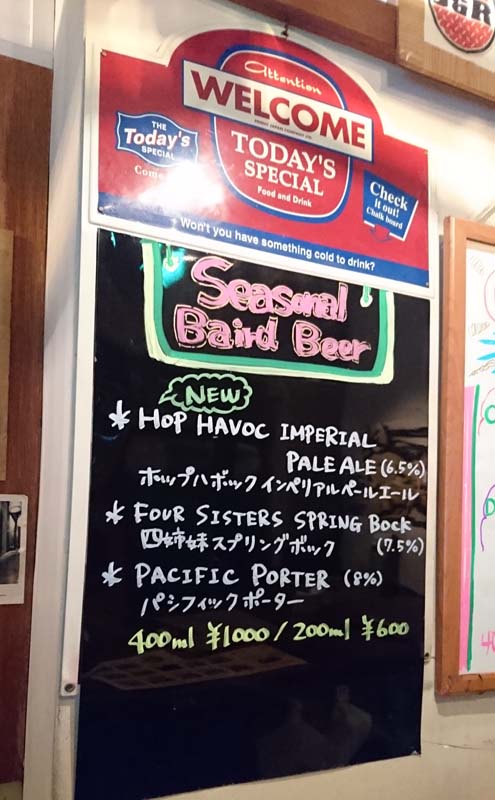 J&R
Attention
WELCOME
TODAY'S
SPECIAL
Food and Drink
THE
Today's
SPECIAL
Check
it out!
Chalk board
Won't you have something cold to drink?
Seasonal
Baird Beer
NEW
* HOP HAVOC IMPERIAL
PALE ALE (6.5%)
ホップハボックインペリアルペールエール
* FOUR SISTERS SPRING BOCK
四姉妹スプリングボック (7.5%)
* PACIFIC PORTER (8%)
パシフィックポーター
400ml ¥1000 / 200ml ¥600